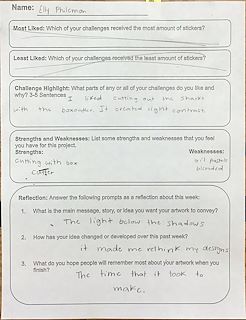 Name: Elly Philemon
Most Liked: Which of your challenges received the most amount of stickers?
Least Liked: Which of your challenges received the least amount of stickers?
Challenge Highlight: What parts of any or all of your challenges do you like and
why? 3-5 Sentences
I liked cutting out the sharks
with the boxcutter. It created light contrast.
Strengths and Weaknesses: List some strengths and weaknesses that you feel
you have for this project.
Strengths: Weaknesses:
Cutting with box oil pastels
cutter blended
Reflection: Answer the following prompts as a reflection about this week:
1. What is the main message, story, or idea you want your artwork to convey?
The light below the shadows
2. How has your idea changed or developed over this past week?
it made me rethink my designs
3. What do you hope people will remember most about your artwork when you
finish?
The time that it took to
make.